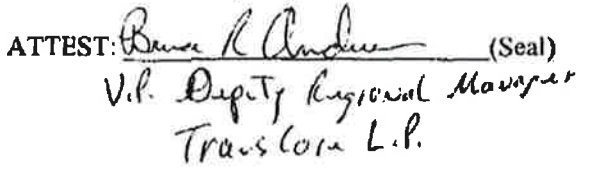 ATTEST: Bruce R (Seal)
V.P. Deputy Regional Manager
TransCore L.P.